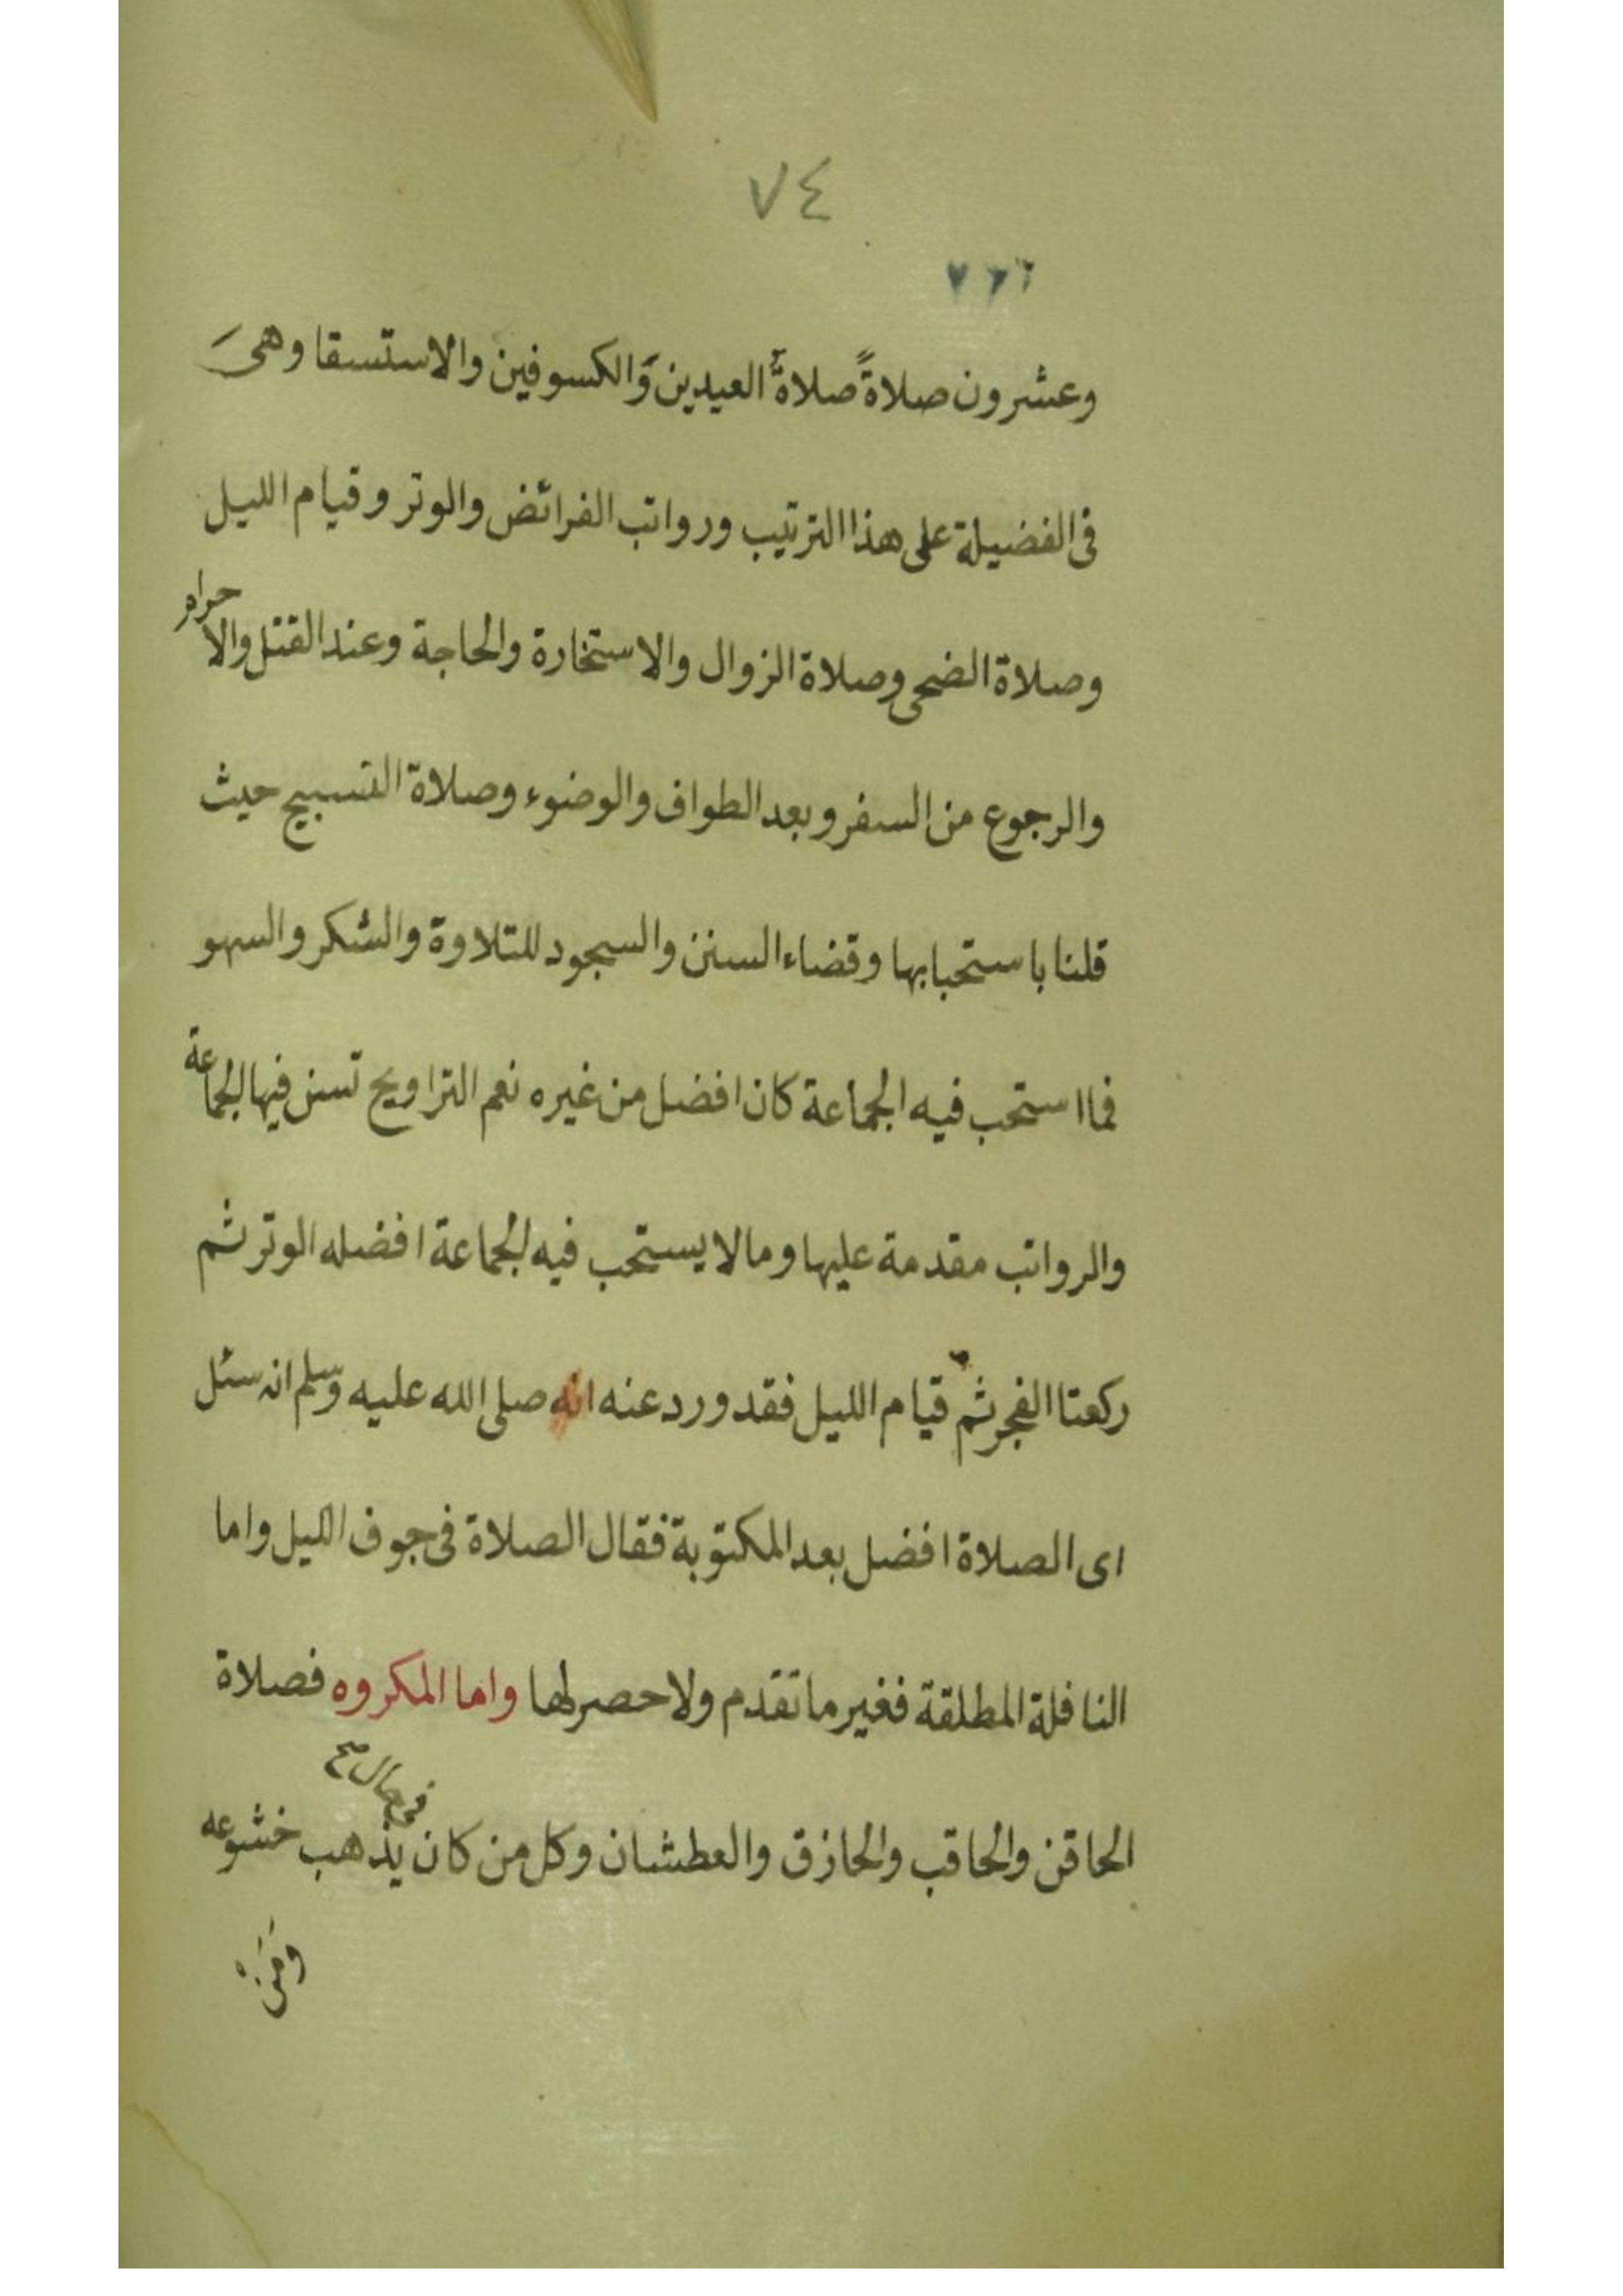 ٧٤
٧٦٦
وعشرون صلاةً صلاةُ العيدين وَالكسوفين والاستسقا وهىَ
فى الفضيلة على هذا الترتيب ورواتب الفرائض والوتر وقيام الليل
وصلاة الضحى وصلاة الزوال والاستخارة والحاجة وعند القتل والاحرام
والرجوع من السفر وبعد الطواف والوضوء وصلاة التسبيح حيث
قلنا باستحبابها وقضاء السنن والسجود للتلاوة والشكر والسهو
فما استحب فيه الجماعة كان افضل من غيره نعم التراويح تسن فيها الجماعة
والرواتب مقدمة عليها وما لا يستحب فيه الجماعة افضله الوتر ثم
ركعتا الفجر ثم قيام الليل فقد ورد عنه انه صلى الله عليه وسلم انه سئل
اى الصلاة افضل بعد المكتوبة فقال الصلاة فى جوف الليل واما
النافلة المطلقة فغير ما تقدم ولا حصر لها واما المكروه فصلاة
فى حال صح
الحاقن والحاقب والحازق والعطشان وكل من كان يذهب خشوعه